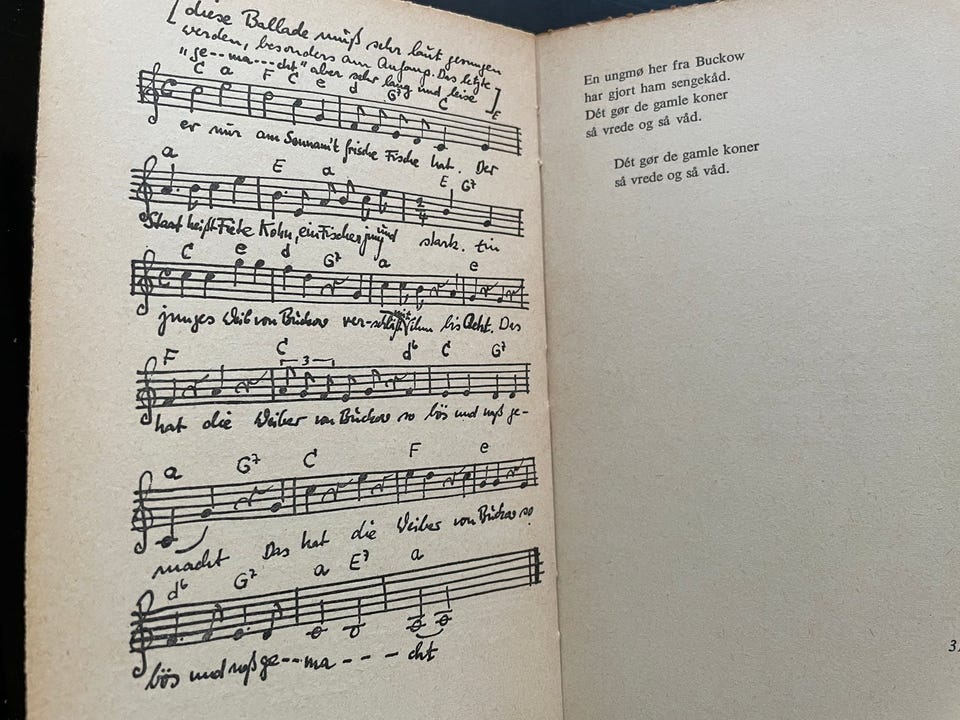 [diese Ballade muß sehr laut gesungen
werden, besonders am Anfang. Das letzte
"ge--ma---cht" aber sehr lang und leise]
C a F C e d G⁷ C E
er nur am Sonnam't frische Fische hat. Der
a E a E G⁷
2/4
Staat heißt Fiete Kohn, ein Fischer jung und stark. Ein
C e d G⁷ a e
junges Weib von Buckow ver-schließt mit ihm bis Acht. Das
F C 3 d⁶ C G⁷
hat die Weiber von Buckow so bös und naß ge-
a G⁷ C F e
macht Das hat die Weiber von Buckow so
d⁶ G⁷ a E⁷ a
bös und naß ge--ma---cht
En ungmø her fra Buckow
har gjort ham sengekåd.
Dét gør de gamle koner
så vrede og så våd.
Dét gør de gamle koner
så vrede og så våd.